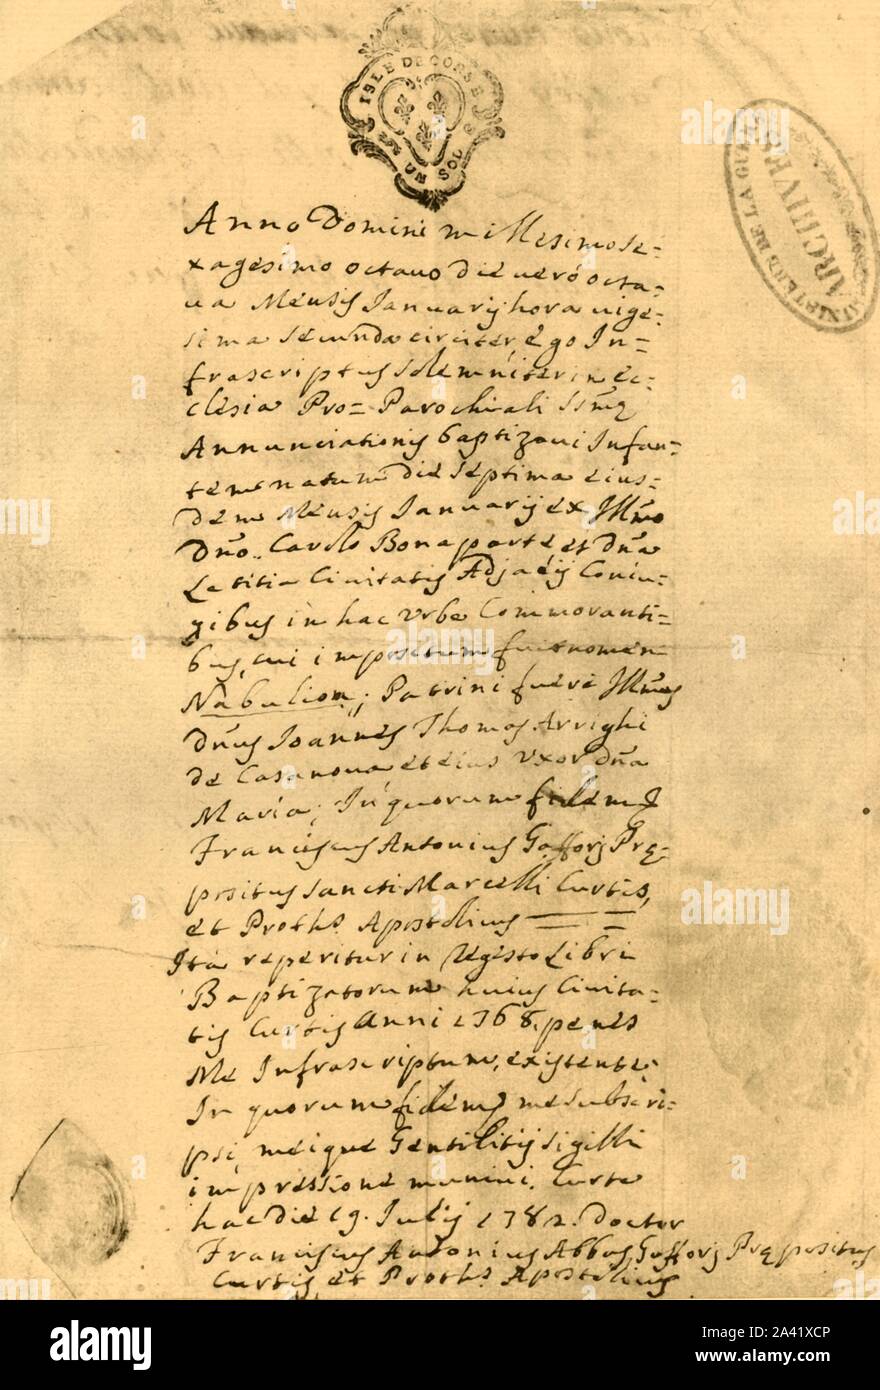 ISLE DE CORSE
UN SOL
MINISTERE DE LA GUERRE
ARCHIVES
Anno Domini millesimo se=
xagesimo octavo die verò octa=
va Mensis Januarij hora vige=
sima secunda circiter, ego In=
frascriptus solemniter in ec=
clesia Pro= Parochiali SSmę
Annunciationis baptizavi Infan=
tem natum die septima eius=
dem Mensis Januarij ex Illmo
Dno. Carolo Bonaparte, et Dna
Letitia Civitatis Adjacij Coniu=
gibus in hac Urbe Commoranti=
bus, cui impositum fuit nomen
Nabulion; Patrini fuere Illmus
Dnus Joannes Thomas Arrighi
de Casanova, et eius Uxor Dna
Maria; In quorum fidem &
Franciscus Antonius Gafforj Prę=
positus Sancti Marcelli Curtis,
et Proths. Apostolicus
Ita reperitur in Regesto Libri
Baptizatorum huius Civita=
tis Curtis Anni 1768. penes
Me Infrascriptum, existente;
In quorum fidem me subscri=
psi, meique Gentilitij sigilli
impressione munivi. Curte
hac die 19. Julij 1782. Doctor
Franciscus Antonius Abbas Gafforj Prępositus
Curtis, et Proths. Apostolicus
alamy
Image ID: 2A41XCP
www.alamy.com